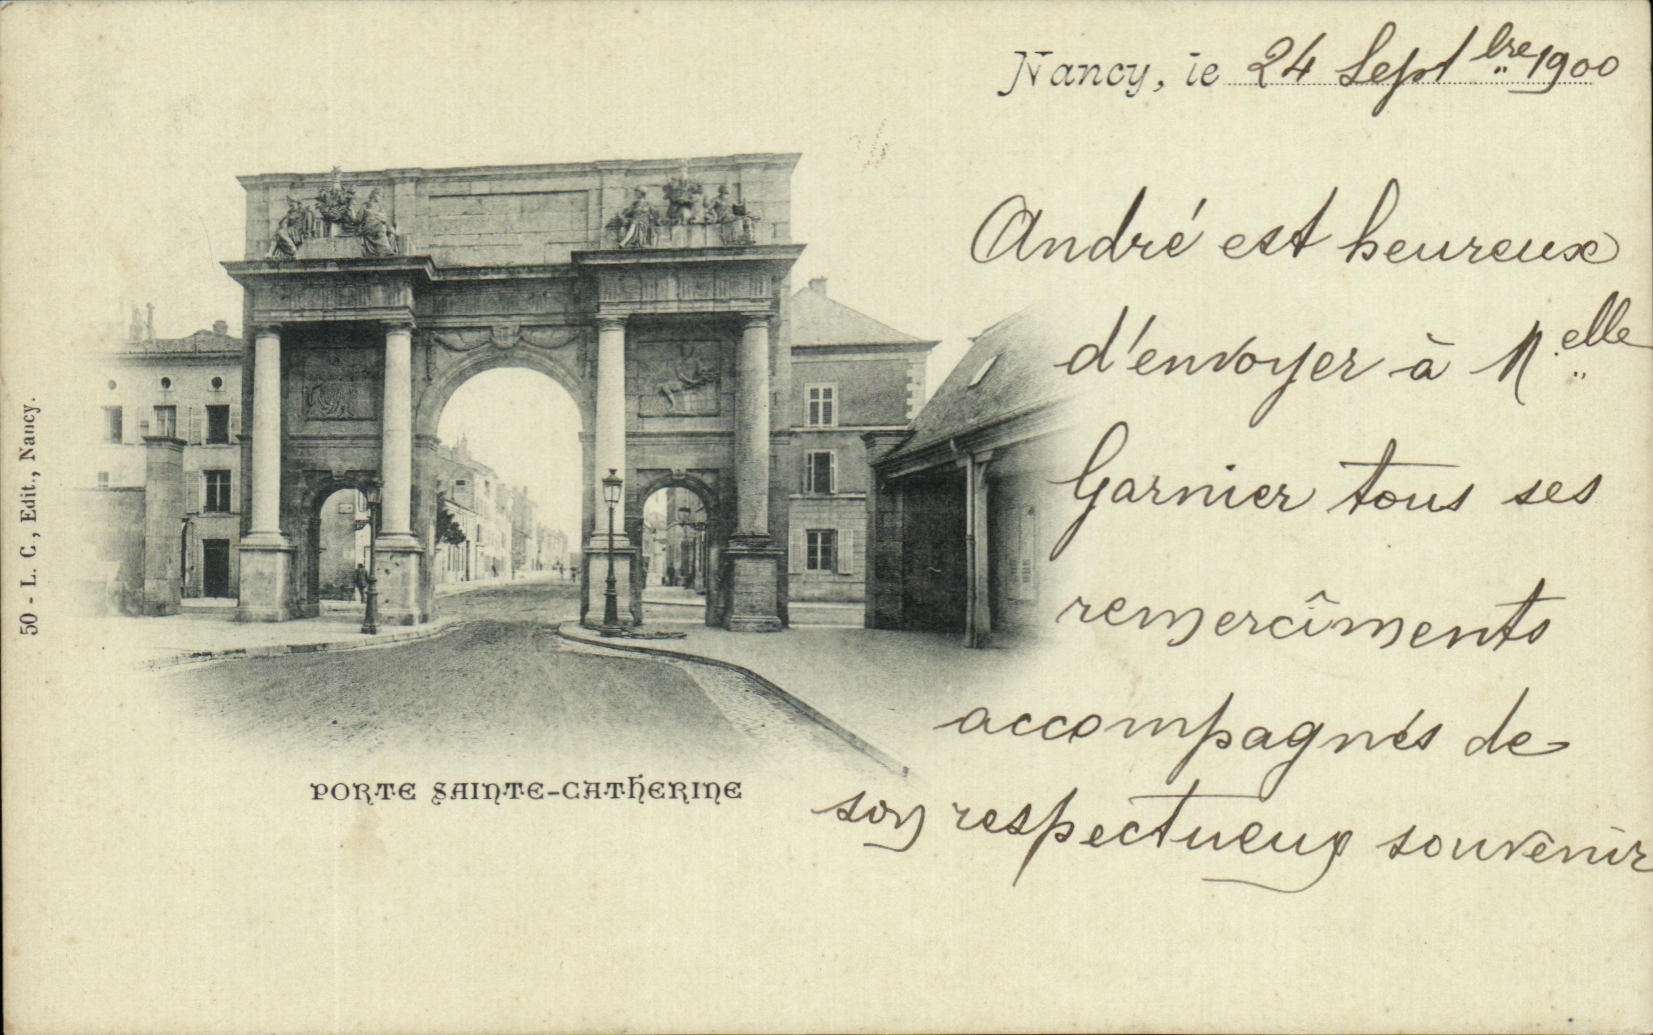 Nancy, le 24 Septbre 1900
André est heureux
d'envoyer à Melle
Garnier tous ses
remercîments
accompagnés de
son respectueux souvenir
PORTE SAINTE-CATHERINE
50 - L. C., Edit., Nancy.